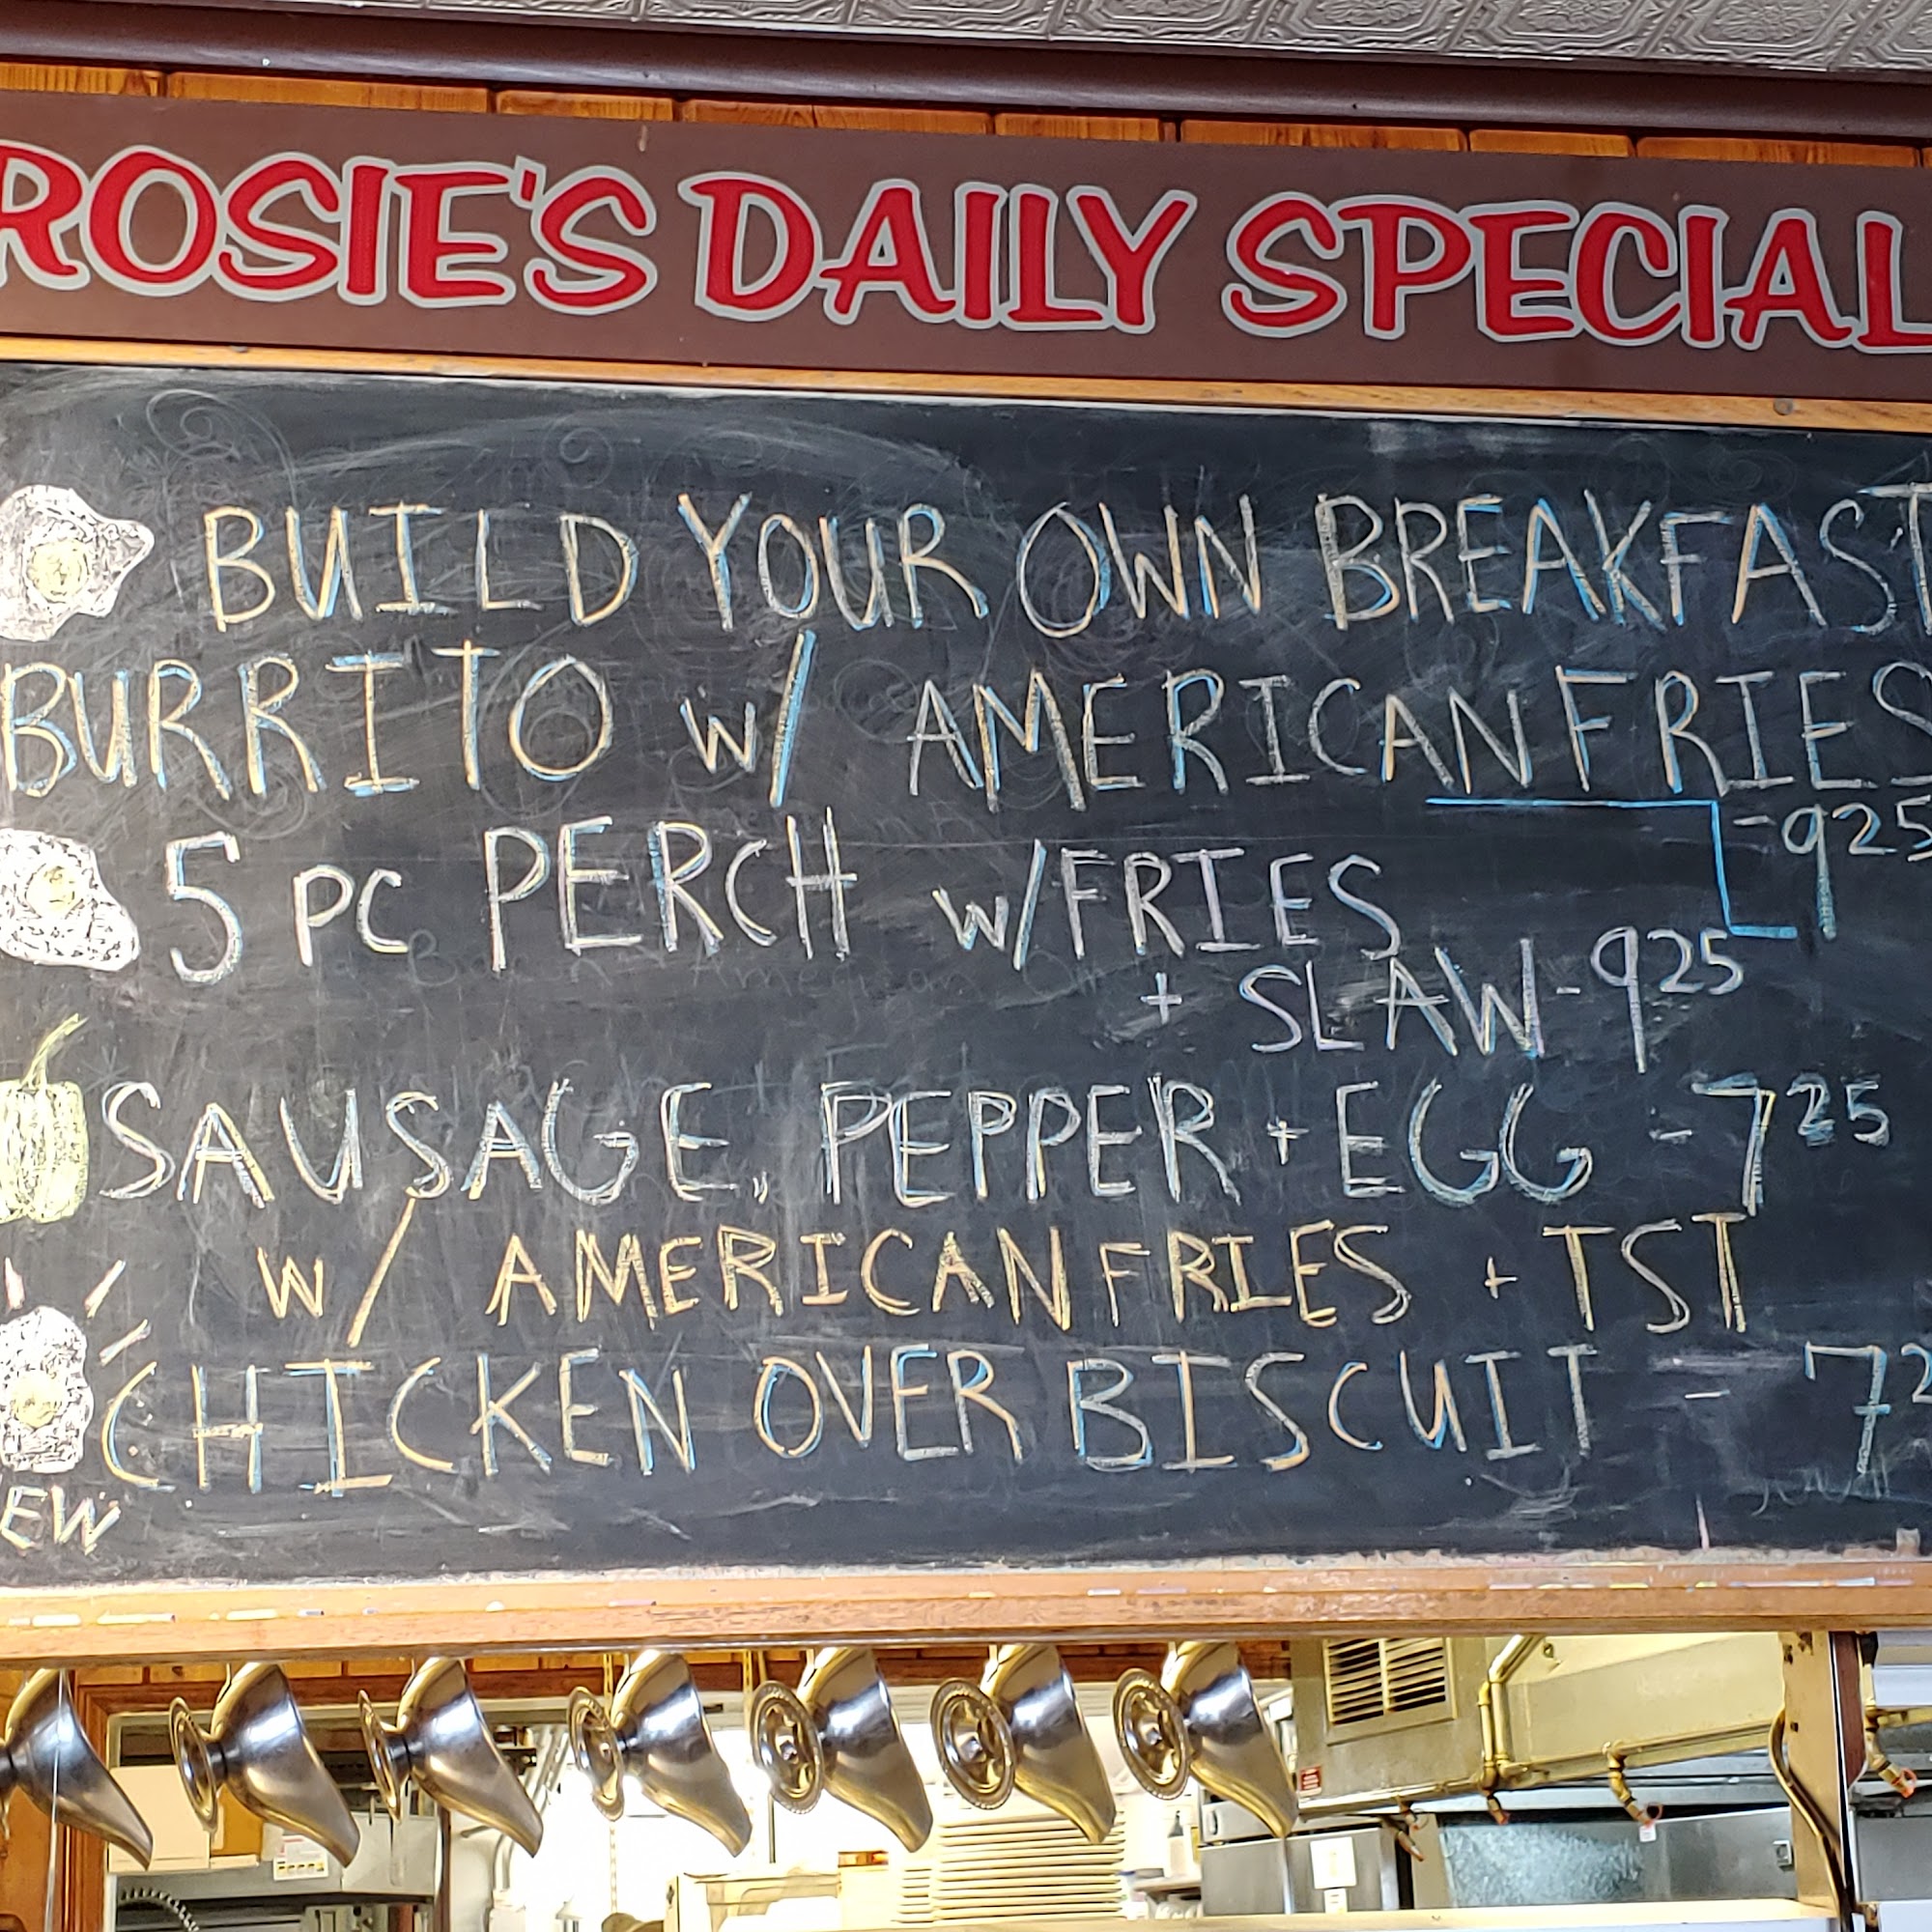 ROSIE'S DAILY SPECIAL
BUILD YOUR OWN BREAKFAST
BURRITO W/ AMERICAN FRIES
-925
5 PC PERCH W/FRIES
+ SLAW-925
SAUSAGE, PEPPER + EGG -725
W/ AMERICAN FRIES + TST
CHICKEN OVER BISCUIT - 72
EW